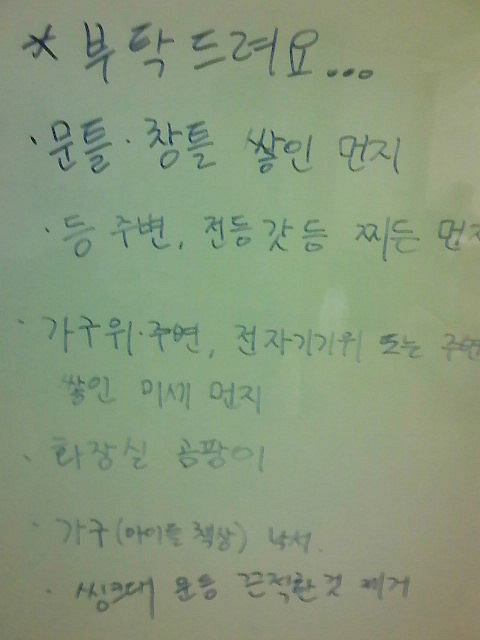 * 부탁드려요...
· 문틀·창틀 쌓인 먼지
· 등 주변, 전등갓등 찌든 먼지
· 가구위·주변, 전자기기위 또는 주변
쌓인 미세 먼지
· 화장실 곰팡이
· 가구(아이들 책상) 낙서.
· 씽크대 문등 끈적한것 제거